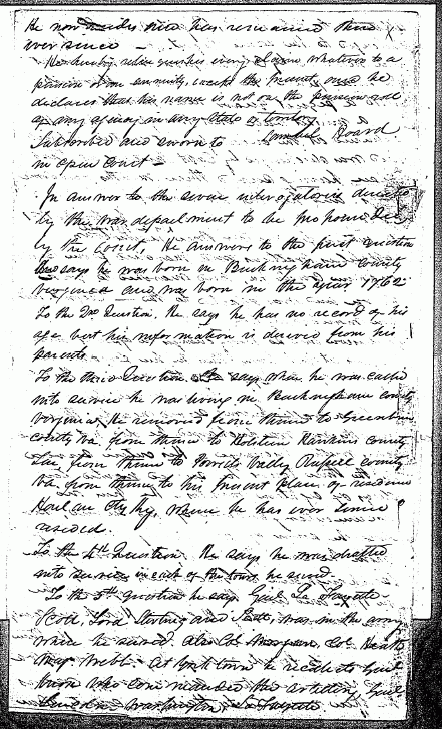 He now resides and has remained there
ever since —
He hereby relinquishes every claim whatever to a
pension or an annuity, except the present, and he
declares that his name is not on the pension roll
of any agency in any state or territory
Subscribed and sworn to Board
in open Court —
In answer to the seven interrogatories directed
by the War department to be propounded
by the Court, He answers to the first question
says he was born in Buckingham County
Virginia and was born in the year 1762
To the 2nd Question, He says he has no record of his
age but his information is derived from his
parents
To the third Question He says when he was called
into service he was living in Buckingham county
Virginia, He removed from thence to Greenbrier
county Va from thence to Holstein Hawkins county
from thence to Valley Russell county
Va from thence to his present place of residence
Harlan Cty Ky, where he has ever since
resided.
To the 4th Question. He says he was drafted
into service in each of the tours he served
To the 5th question he says Genl La Fayette
Scott, Lord Sterling and was in the army
where he served also Col. Morgan, Col.
Maj Webb. At York town he recollects Genl
who commanded the artillery, Genl
Lincoln Washington, La Fayette